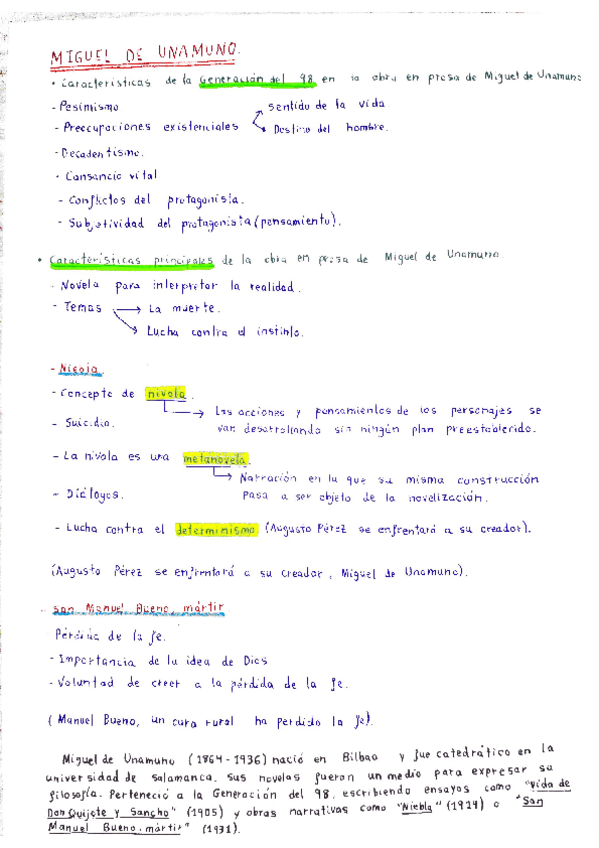 MIGUEL DE UNAMUNO.
• Características de la Generación del 98 en la obra en prosa de Miguel de Unamuno
- Pesimismo
- Preocupaciones existenciales → sentido de la vida
→ Destino del hombre.
- Decadentismo.
- Cansancio vital
- Conflictos del protagonista.
- Subjetividad del protagonista (pensamiento).
• Características principales de la obra en prosa de Miguel de Unamuno.
- Novela para interpretar la realidad.
- Temas → La muerte.
→ Lucha contra el instinto.
- Niebla
- Concepto de nivola.
→ Las acciones y pensamientos de los personajes se
van desarrollando sin ningún plan preestablecido.
- Suicidio.
- La nivola es una metanovela.
→ Narración en la que su misma construcción
pasa a ser objeto de la novelización.
- Diálogos.
- Lucha contra el determinismo (Augusto Pérez se enfrentará a su creador).
(Augusto Pérez se enfrentará a su creador, Miguel de Unamuno).
- San Manuel Bueno, mártir
Pérdida de la fe.
- Importancia de la idea de Dios
- Voluntad de creer a la pérdida de la fe.
(Manuel Bueno, un cura rural ha perdido la fe).
Miguel de Unamuno (1864-1936) nació en Bilbao y fue catedrático en la
universidad de salamanca. Sus novelas fueron un medio para expresar su
filosofía. Perteneció a la Generación del 98, escribiendo ensayos como "Vida de
Don Quijote y Sancho" (1905) y obras narrativas como "Niebla" (1914) o "San
Manuel Bueno, mártir" (1931).